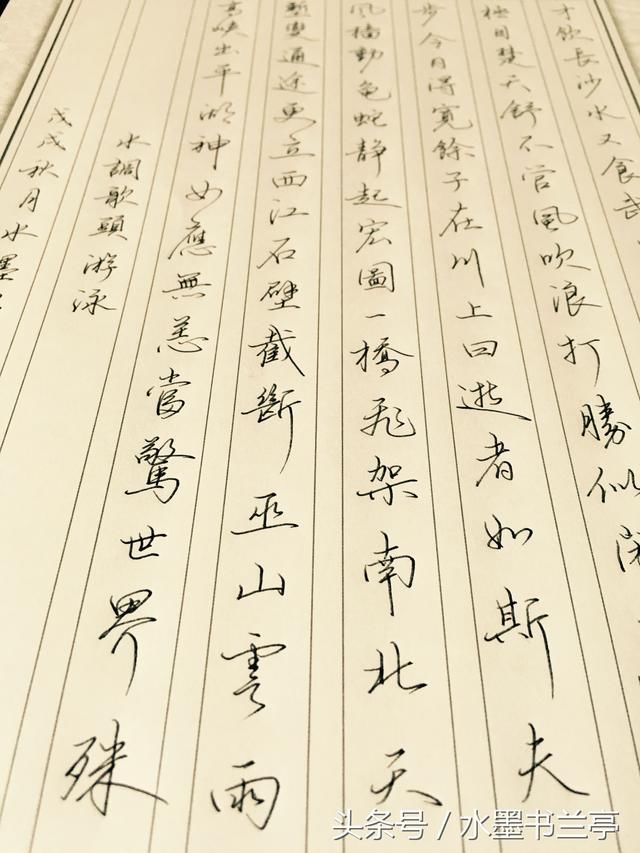 才飲長沙水又食武
極目楚天舒不管風吹浪打勝似閑
步今日得寬餘子在川上曰逝者如斯夫
風檣動龜蛇靜起宏圖一橋飛架南北天
塹變通途更立西江石壁截斷巫山雲雨
高峽出平湖神女應無恙當驚世界殊
水調歌頭游泳
戊戌秋月水墨
头条号 / 水墨书兰亭